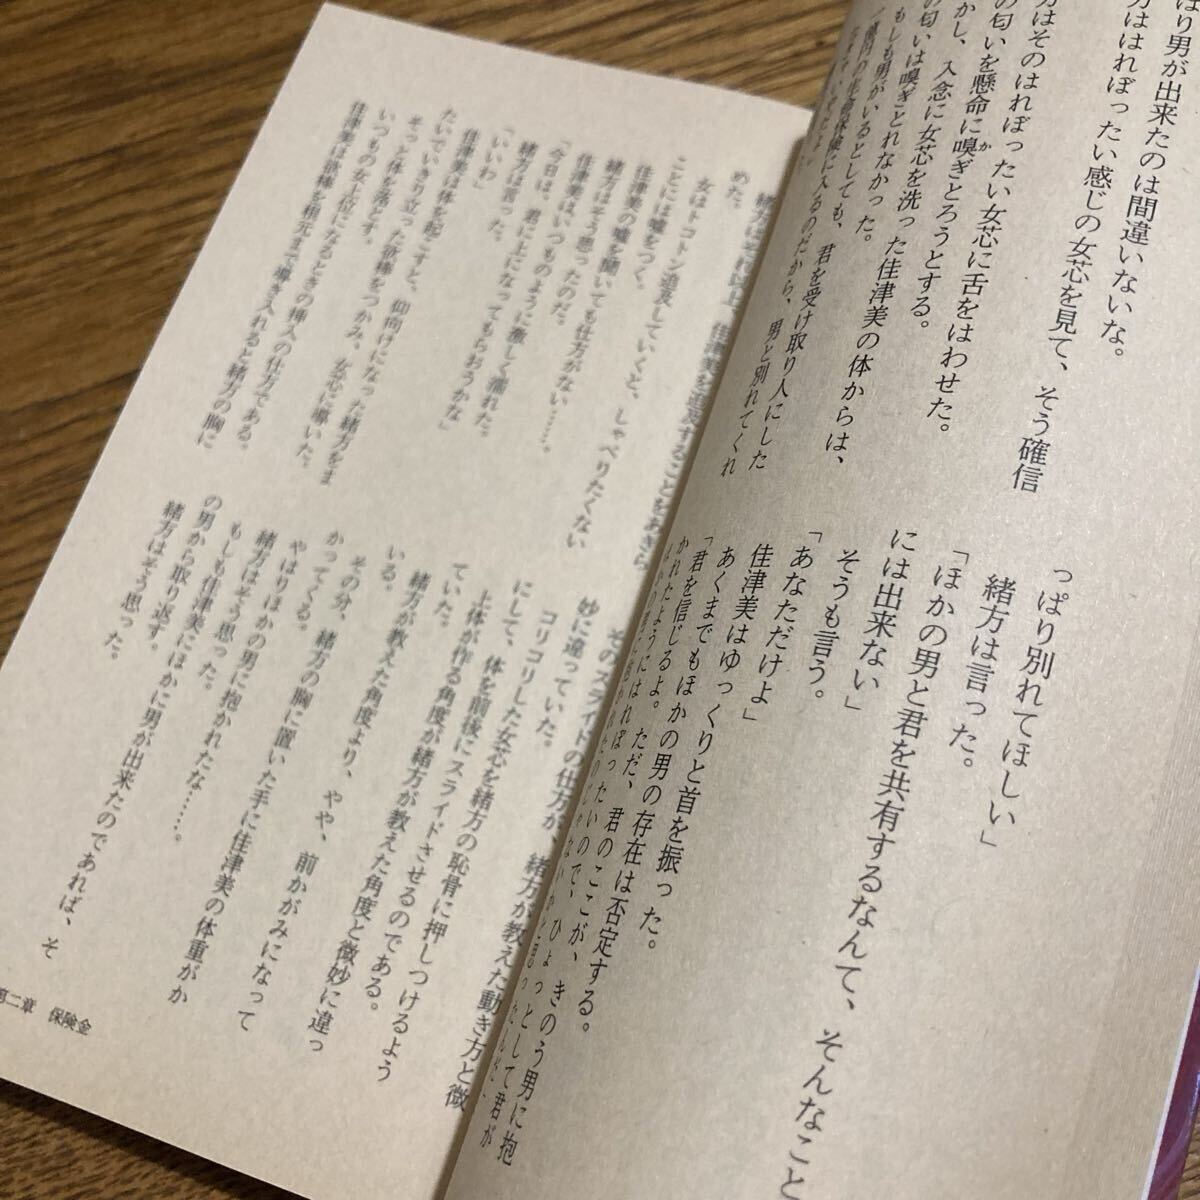 ぱり男が出来たのは間違いないな。
方ははれぼったい感じの女芯を見て、そう確信
方はそのはれぼったい女芯に舌をはわせた。
の匂いを懸命に嗅ぎとろうとする。
かし、入念に女芯を洗った佳津美の体からは、
の匂いは嗅ぎとれなかった。
もしも男がいるとしても、君を受け取り人にした
億円の生命保険に入るのだから、男と別れてくれ
っぱり別れてほしい」
緒方は言った。
「ほかの男と君を共有するなんて、そんなこと
には出来ない」
そうも言う。
「あなただけよ」
佳津美はゆっくりと首を振った。
あくまでもほかの男の存在は否定する。
「君を信じるよ。ただ、君のここが、きのう男に抱
かれたようにはれぼったいので、ひょっとして君が
緒方はそれ以上、佳津美を追及することをあきら
めた。
女はトコトン追及していくと、しゃべりたくない
ことには嘘をつく。
佳津美の嘘を聞いても仕方がない……。
緒方はそう思ったのだ。
佳津美はいつものように激しく濡れた。
「今日は、君に上になってもらおうかな」
緒方は言った。
「いいわ」
佳津美は体を起こすと、仰向けになった緒方をま
たいでいきり立った欲棒をつかみ、女芯に導いた。
そっと体を落とす。
いつもの女上位になるときの挿入の仕方である。
佳津美は欲棒を根元まで導き入れると緒方の胸に
そのスライドの仕方が、緒方が教えた動き方と微
妙に違っていた。
コリコリした女芯を緒方の恥骨に押しつけるよう
にして、体を前後にスライドさせるのである。
上体が作る角度が緒方が教えた角度と微妙に違っ
ていた。
緒方が教えた角度より、やや、前かがみになって
いる。
その分、緒方の胸に置いた手に佳津美の体重がか
かってくる。
やはりほかの男に抱かれたな……。
緒方はそう思った。
もしも佳津美にほかに男が出来たのであれば、そ
の男から取り返す。
緒方はそう思った。
第二章　保険金